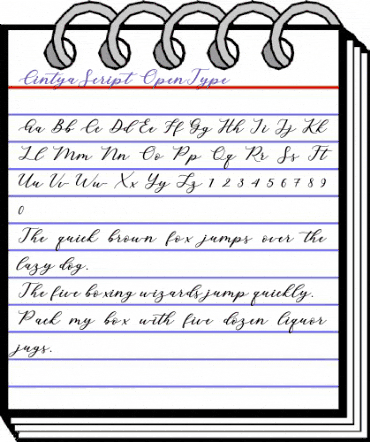 Cintya Script OpenType
Aa Bb Cc Dd Ee Ff Gg Hh Ii Jj Kk
Ll Mm Nn Oo Pp Qq Rr Ss Tt
Uu Vv Ww Xx Yy Zz 1 2 3 4 5 6 7 8 9
0
The quick brown fox jumps over the
lazy dog.
The five boxing wizards jump quickly.
Pack my box with five dozen liquor
jugs.